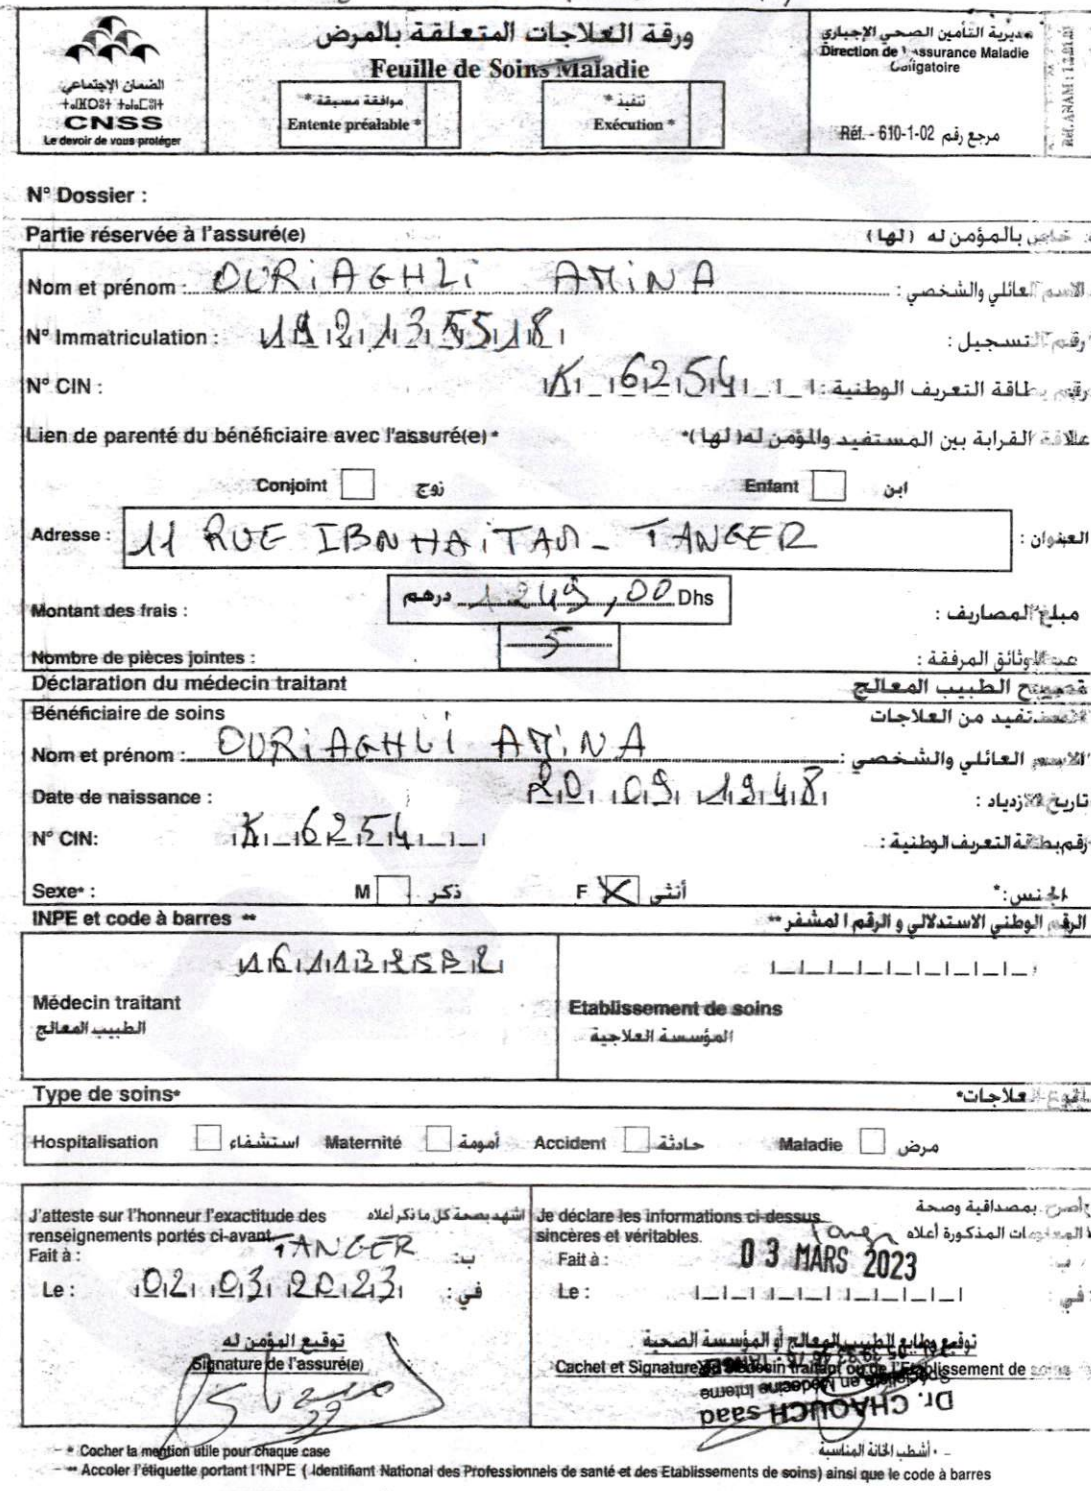 ورقة العلاجات المتعلقة بالمرض
Feuille de Soins Maladie
مديرية التأمين الصحي الإجباري
Direction de l'Assurance Maladie
Obligatoire
الضمان الإجتماعي
CNSS
Le devoir de vous protéger
موافقة مسبقة *
Entente préalable *
تنفيذ *
Exécution *
Réf. - 610-1-02 مرجع رقم
Réf. ANAM :
N° Dossier :
Partie réservée à l'assuré(e) خاص بالمؤمن له (لها)
Nom et prénom : OURIAGHLI AMINA الاسم العائلي والشخصي :
N° Immatriculation : 192135518 رقم التسجيل :
N° CIN : K_6254 رقم بطاقة التعريف الوطنية :
Lien de parenté du bénéficiaire avec l'assuré(e)* علاقة القرابة بين المستفيد والمؤمن له (لها)*
Conjoint زوج Enfant ابن
Adresse : 11 RUE IBNHAITAM - TANGER العنوان :
Montant des frais : درهم 1249,00 Dhs مبلغ المصاريف :
Nombre de pièces jointes : 5 عدد الوثائق المرفقة :
Déclaration du médecin traitant تصريح الطبيب المعالج
Bénéficiaire de soins المستفيد من العلاجات
Nom et prénom : OURIAGHLI AMINA الاسم العائلي والشخصي :
Date de naissance : 20 09 1948 تاريخ الازدياد :
N° CIN: K_6254 رقم بطاقة التعريف الوطنية :
Sexe* : M ذكر F X أنثى الجنس :*
INPE et code à barres ** الرقم الوطني الاستدلالي و الرقم المشفر **
Médecin traitant
الطبيب المعالج
Etablissement de soins
المؤسسة العلاجية
Type de soins* نوع العلاجات*
Hospitalisation استشفاء Maternité أمومة Accident حادثة Maladie مرض
J'atteste sur l'honneur l'exactitude des اشهد بصحة كل ما ذكر أعلاه
renseignements portés ci-avant
Fait à : TANGER ب:
Le : 02 03 2023 في :
توقيع المؤمن له
Signature de l'assuré(e)
Je déclare les informations ci-dessus أصرح بمصداقية وصحة
sincères et véritables. المعلومات المذكورة أعلاه
Fait à : Tanger ب :
03 MARS 2023
Le : في :
توقيع وطابع الطبيب المعالج أو المؤسسة الصحية
Cachet et Signature du Médecin traitant ou de l'Etablissement de soins
Spécialiste en Médecine Interne
Dr. CHAOUCH Saad
* Cocher la mention utile pour chaque case * أشطب الخانة المناسبة
** Accoler l'étiquette portant l'INPE ( Identifiant National des Professionnels de santé et des Etablissements de soins) ainsi que le code à barres